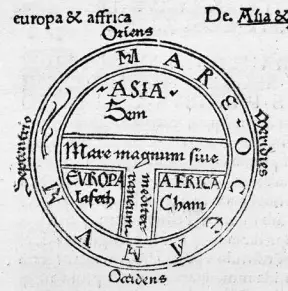 europa & affrica
De. Asia &
Oriens
MARE OCEANUM
Septentrio
Meridies
ASIA
Sem
Mare magnum siue
mediter
raneum
EVROPA
Iafeth
AFRICA
Cham
Occidens